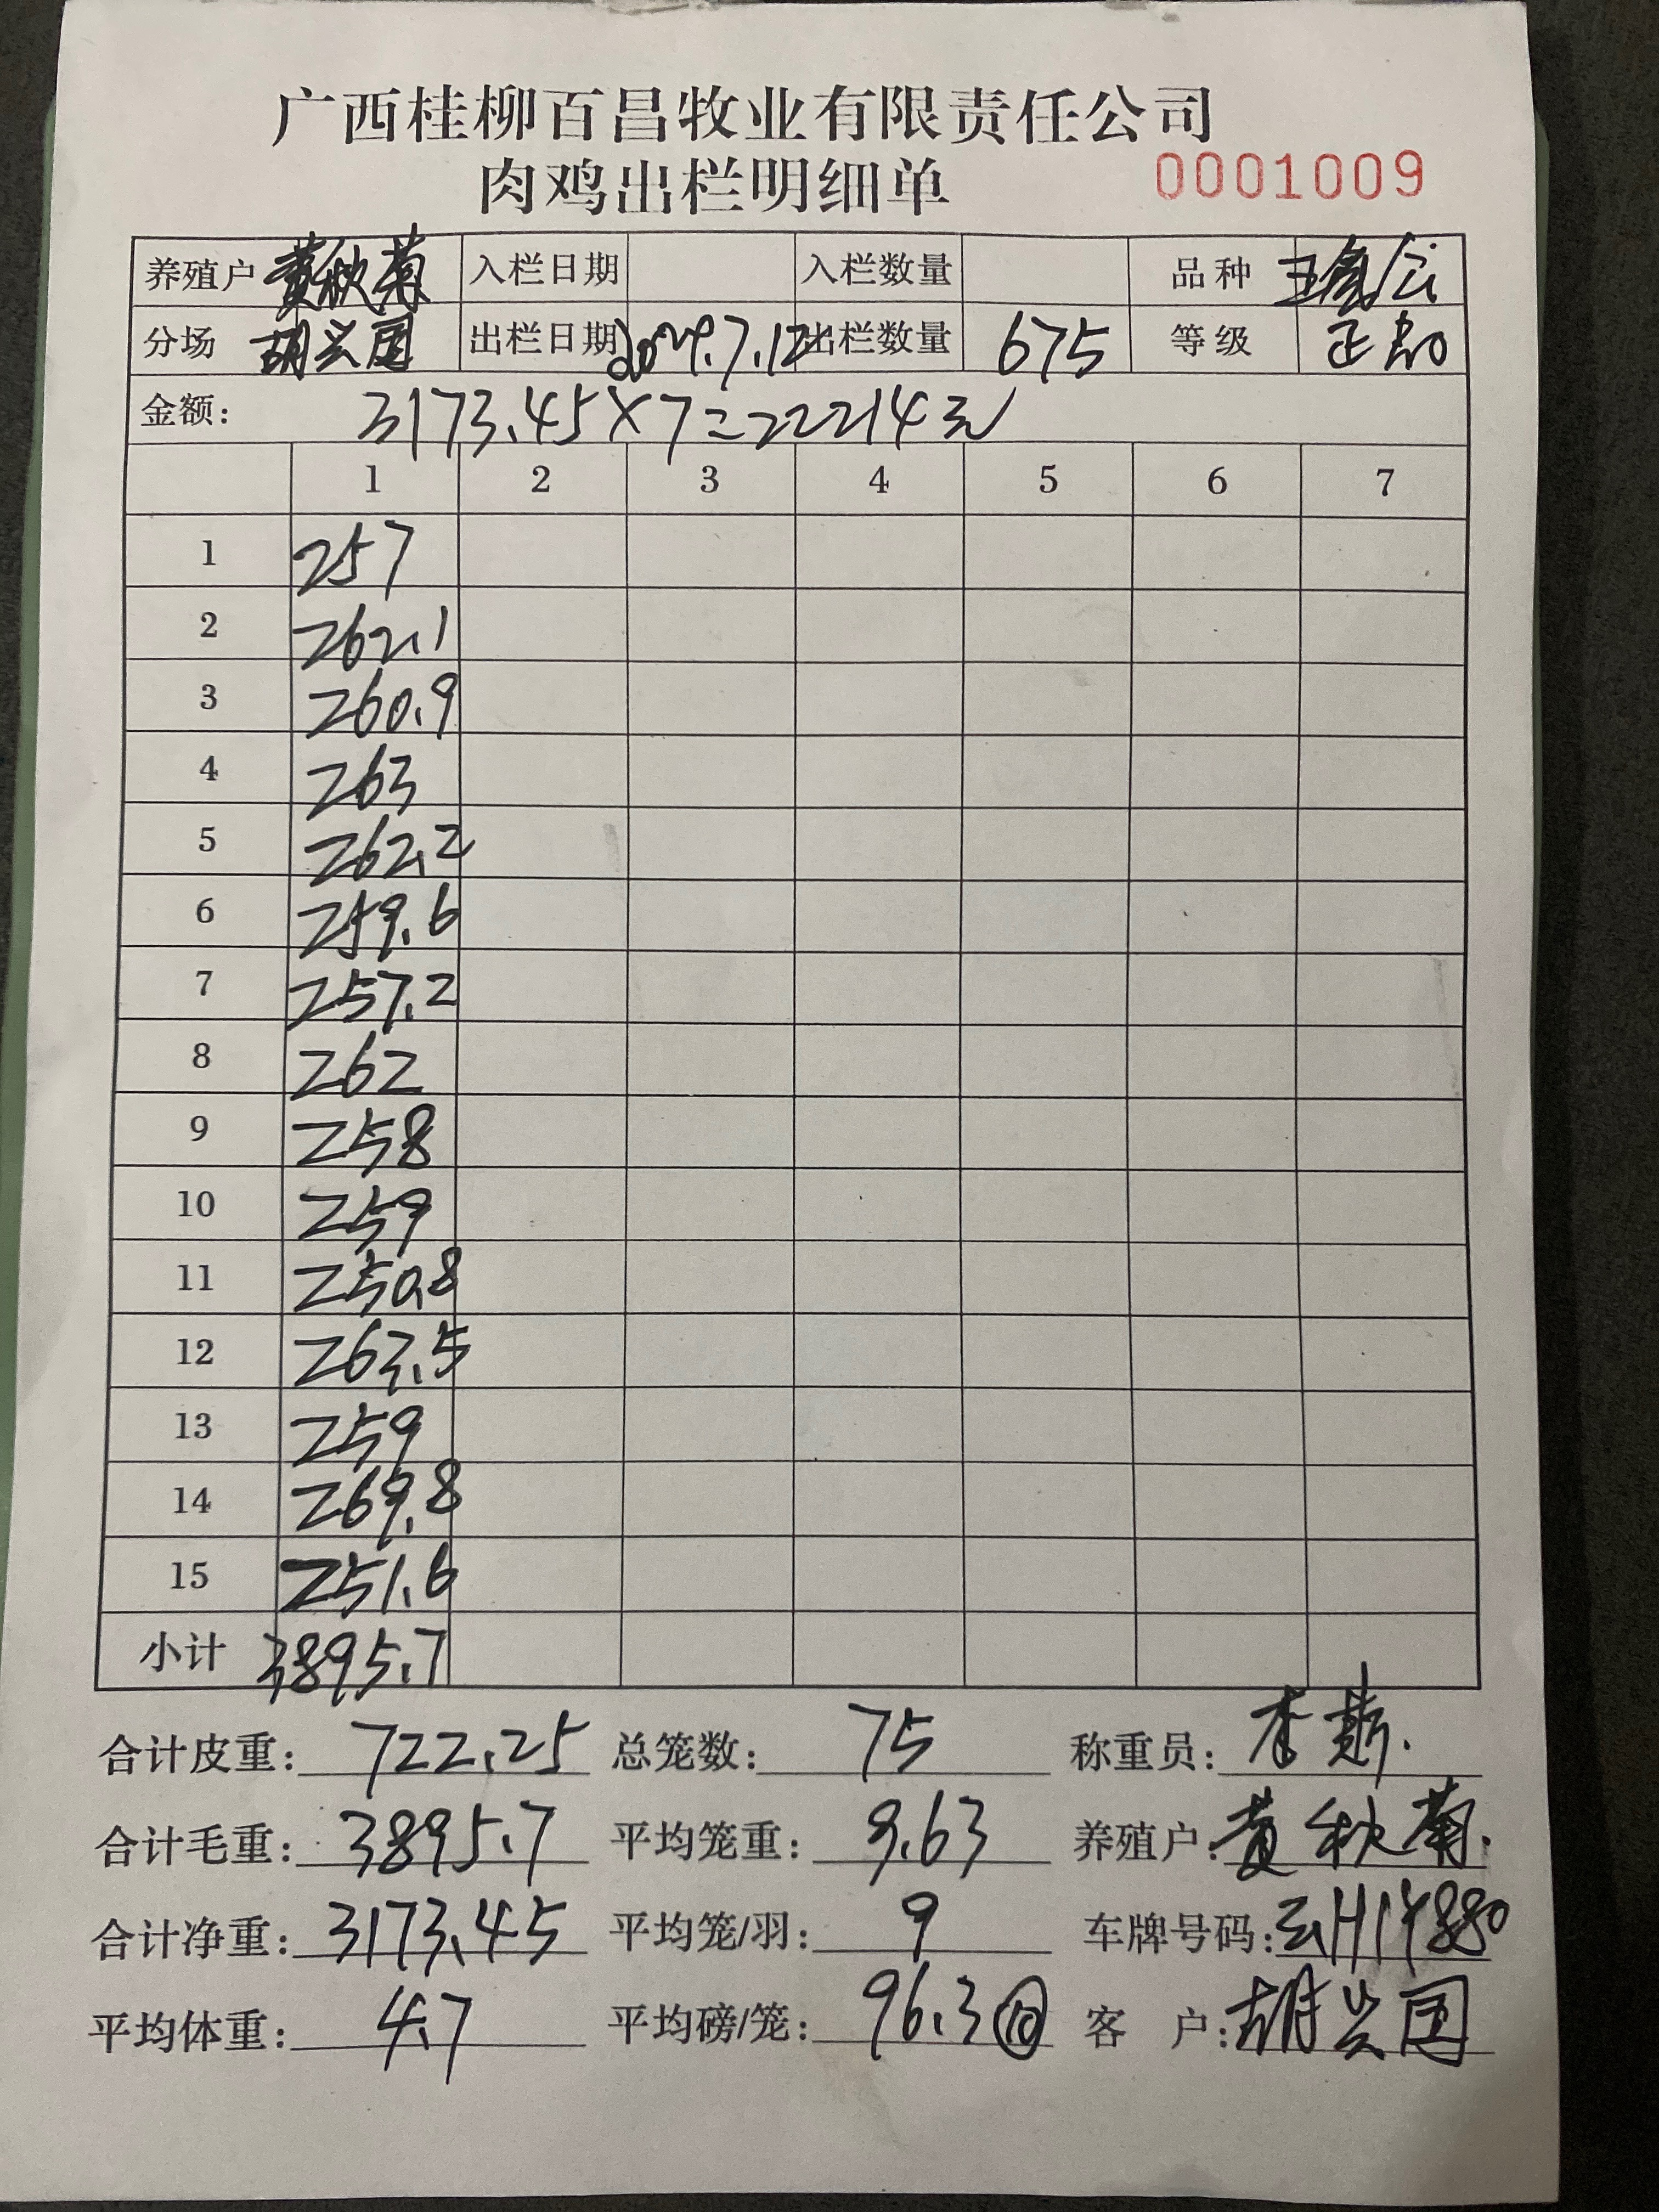 广西桂柳百昌牧业有限责任公司
肉鸡出栏明细单 0001009
养殖户 黄秋菊 入栏日期 入栏数量 品种
分场 胡兴国 出栏日期 2024.7.12 出栏数量 675 等级 正
金额: 3173.45×7=22214元
1 2 3 4 5 6 7
1 257
2 262.1
3 260.9
4 263
5 262.2
6 259.6
7 257.2
8 262
9 258
10 259
11 250.8
12 263.5
13 259
14 269.8
15 251.6
小计 3895.7
合计皮重: 722.25 总笼数: 75 称重员: 李
合计毛重: 3895.7 平均笼重: 9.63 养殖户: 黄秋菊.
合计净重: 3173.45 平均笼/羽: 9 车牌号码:
平均体重: 4.7 平均磅/笼: 96.3 ⑩ 客 户: 胡兴国